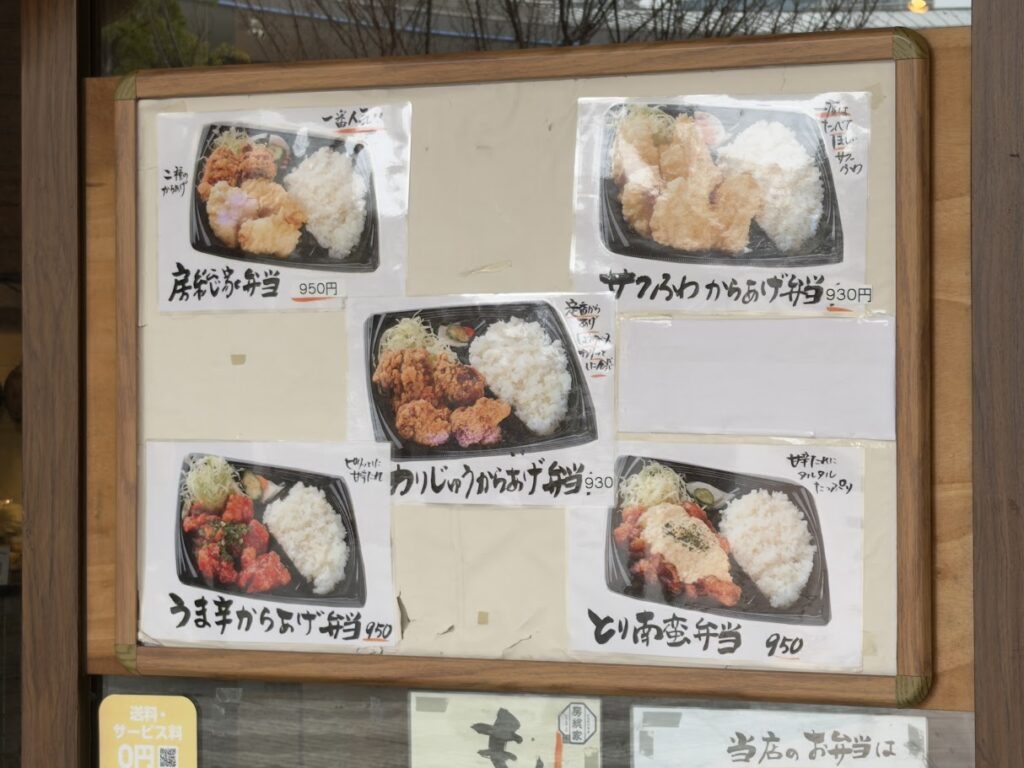 一番人気!!
二種の
からあげ
房総家弁当 950円
一度は
たべて
ほしい
サクふわ
サクふわからあげ弁当 930円
定番から
あげ
かりじゅうからあげ弁当 930
ピリッとした
甘辛だれ
うま辛からあげ弁当 950
甘辛だれに
タルタル
たっぷり
とり南蛮弁当 950
送料・
サービス料
0円
房総家
当店のお弁当は